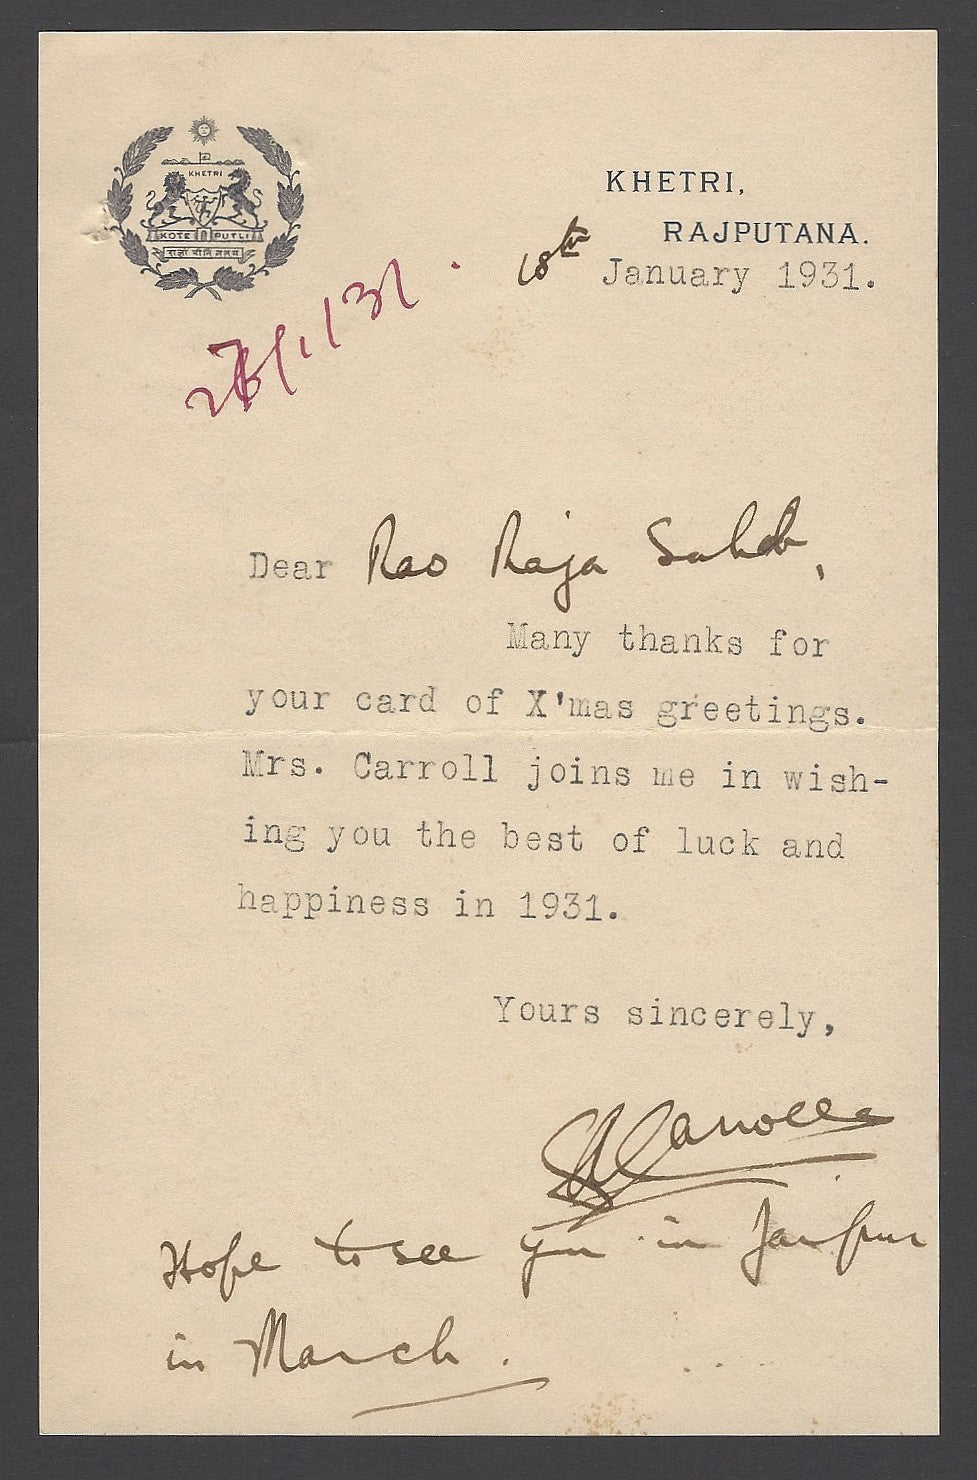 KHETRI
KOTE PUTLI
KHETRI,
RAJPUTANA.
18th January 1931.
Dear Rao Raja Saheb,
Many thanks for
your card of X'mas greetings.
Mrs. Carroll joins me in wish-
ing you the best of luck and
happiness in 1931.
Yours sincerely,
Carroll
Hope to see you in Jaipur
in March.